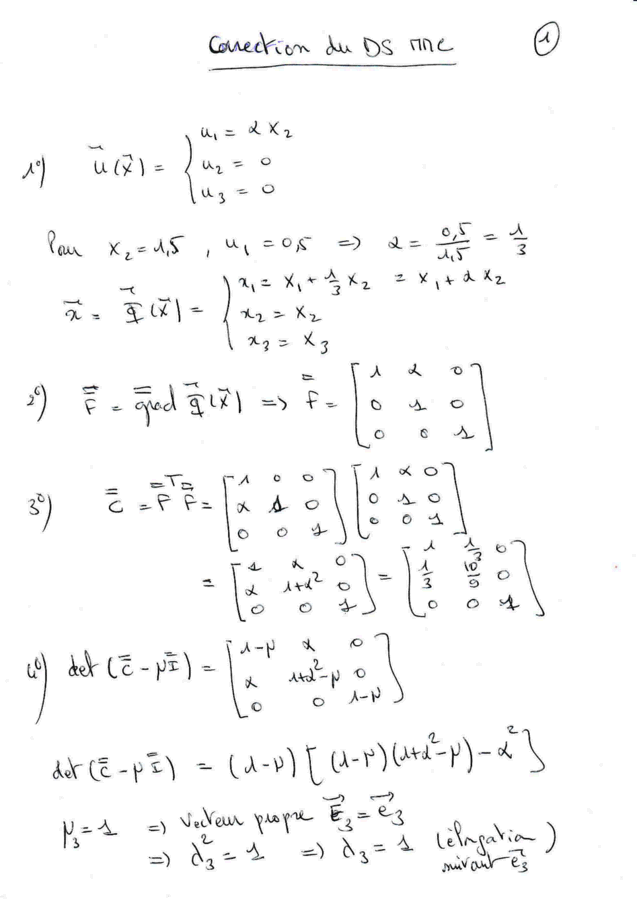 Correction du DS MMC
①
1°) u⃗(X⃗) = { u₁ = α X₂
u₂ = 0
u₃ = 0
Pour X₂ = 1,5 , u₁ = 0,5 => α = 0,5/1,5 = 1/3
x⃗ = Φ⃗(X⃗) = { x₁ = X₁ + 1/3 X₂ = X₁ + α X₂
x₂ = X₂
x₃ = X₃
2°) F̿ = g̿rad Φ⃗(X⃗) => F̿ = [ 1 α 0
0 1 0
0 0 1 ]
3°) C̿ = F̿ᵀ F̿ = [ 1 0 0 ; α 1 0 ; 0 0 1 ] [ 1 α 0 ; 0 1 0 ; 0 0 1 ]
= [ 1 α 0 ; α 1+α² 0 ; 0 0 1 ] = [ 1 1/3 0 ; 1/3 10/9 0 ; 0 0 1 ]
4°) det (C̿ - μI̿) = [ 1-μ α 0 ; α 1+α²-μ 0 ; 0 0 1-μ ]
det (C̿ - μI̿) = (1-μ) [ (1-μ)(1+α²-μ) - α² ]
μ₃ = 1 => Vecteur propre E⃗₃ = e⃗₃
=> λ₃² = 1 => λ₃ = 1 (élongation suivant e⃗₃)